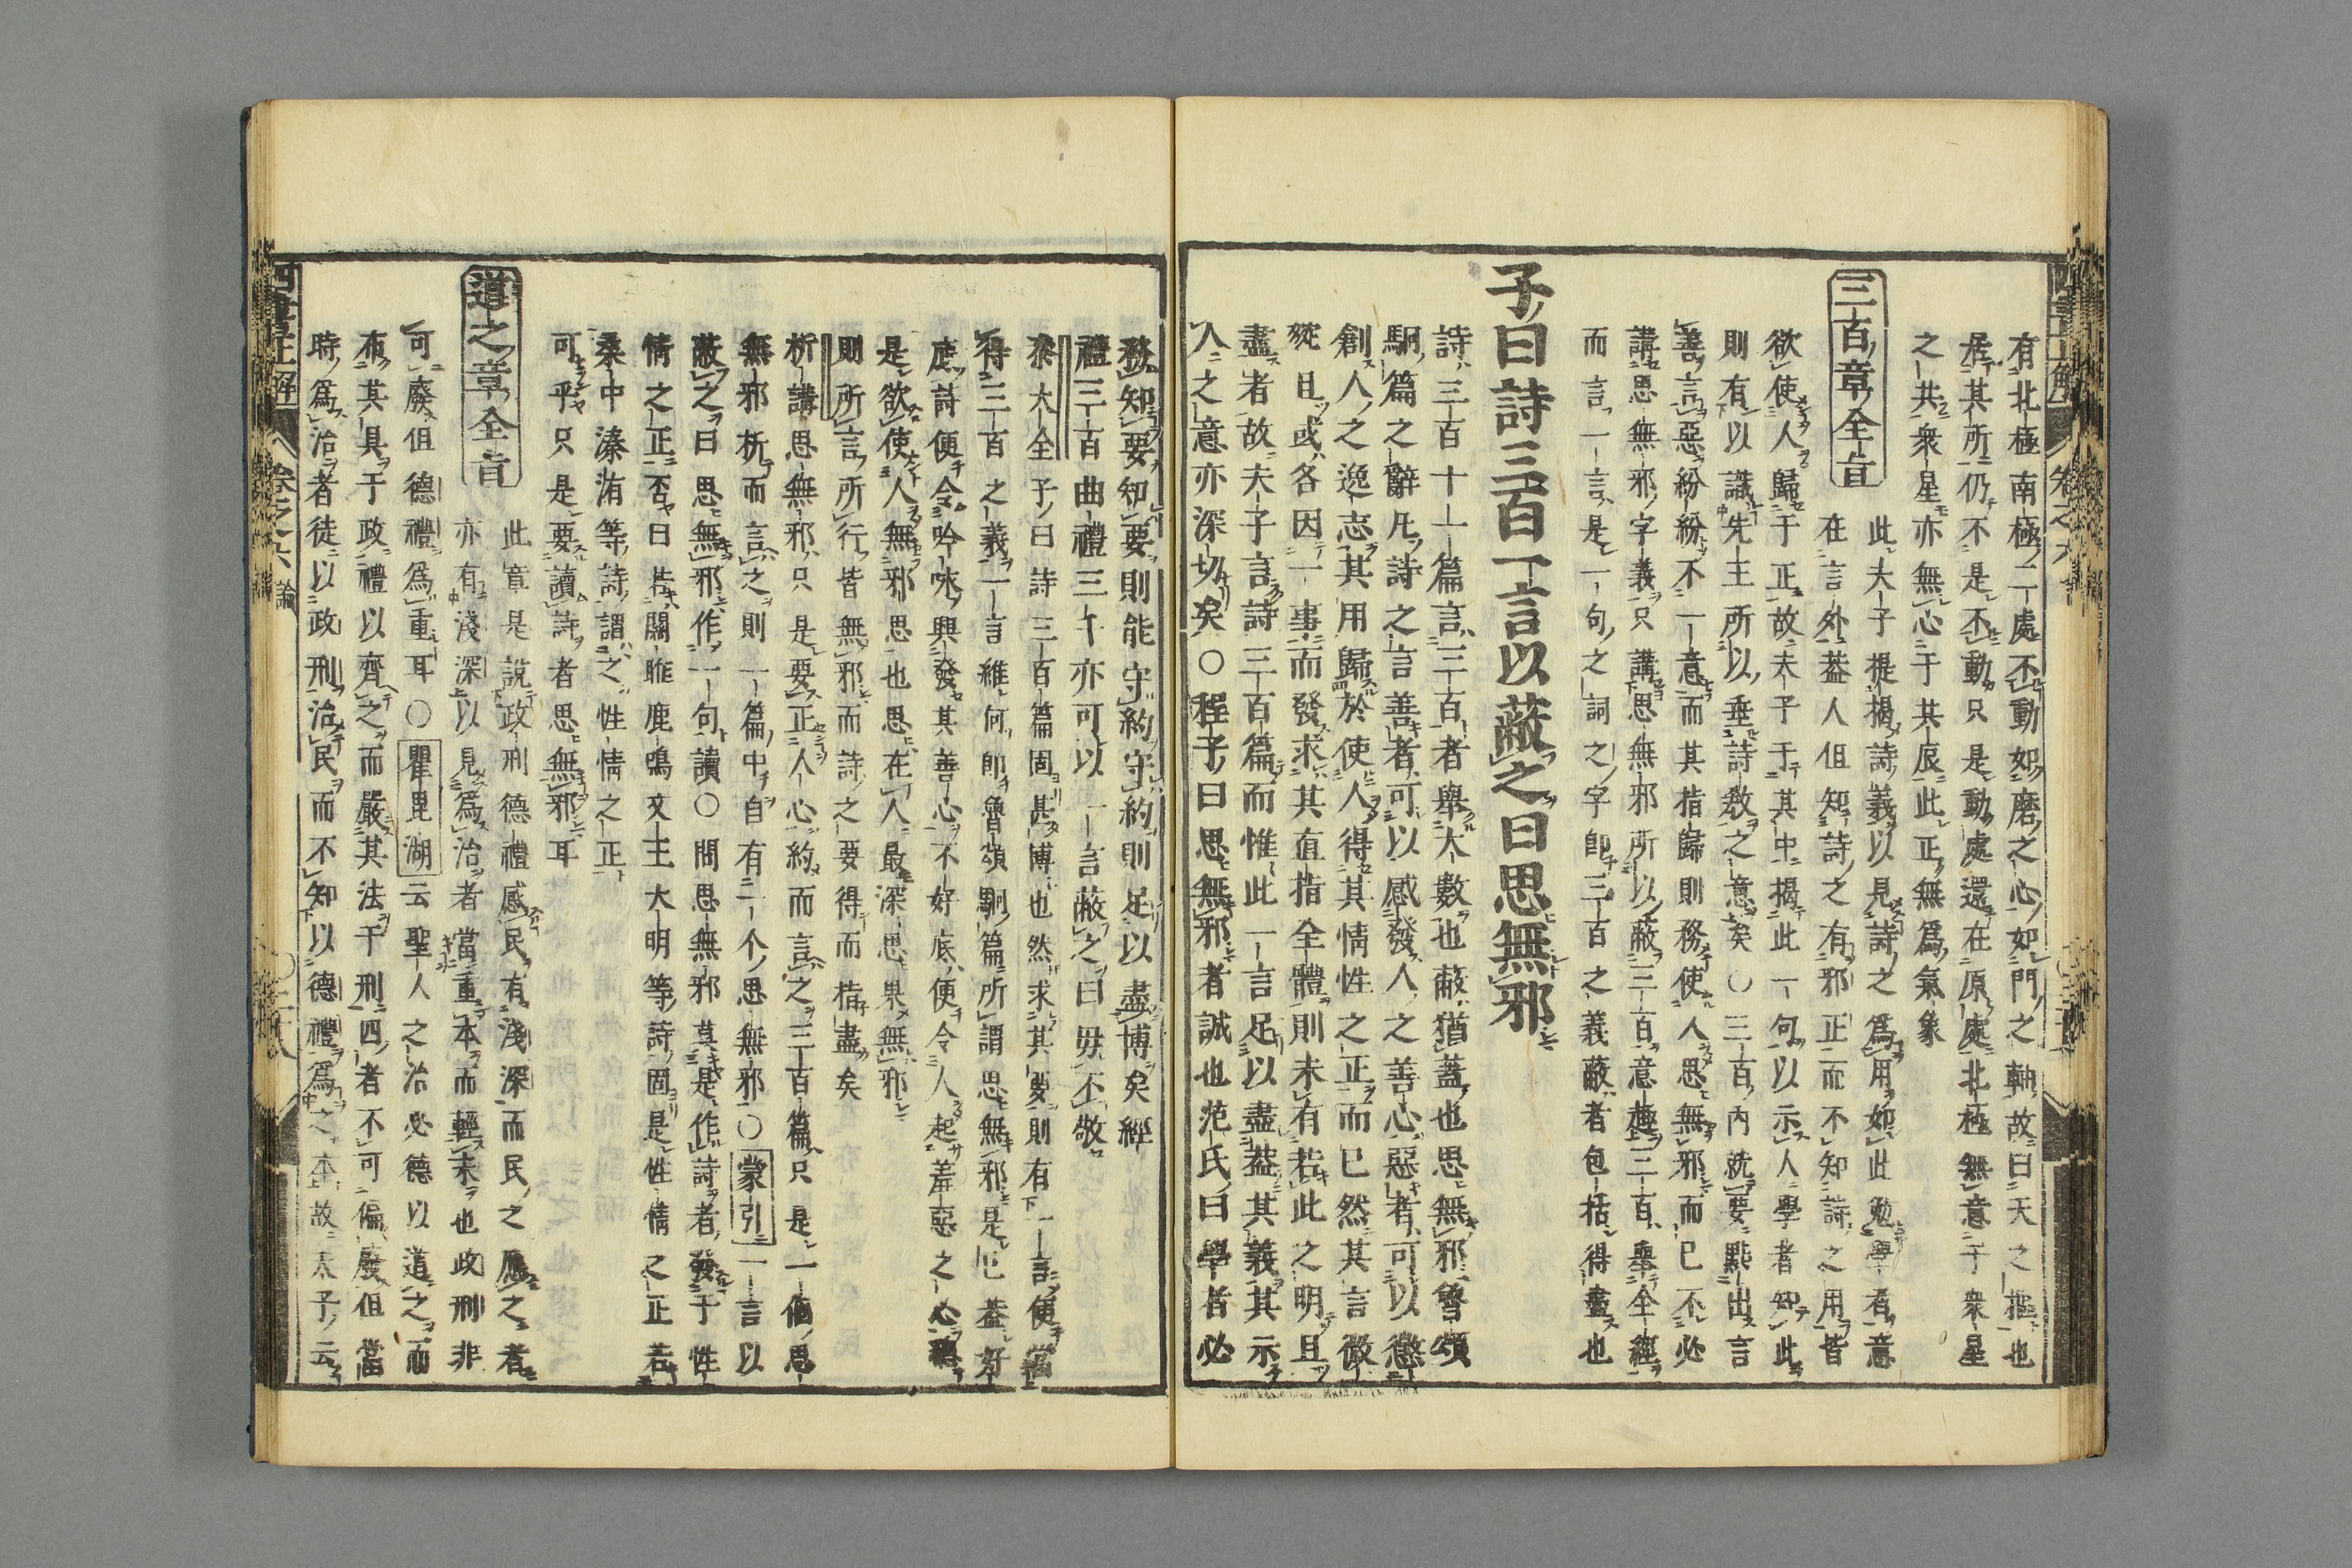 有北極南極二處不動如磨之心如門之軸故曰天之樞也
居其所仍不是不動只是動處還在原處北極無意于衆星
之共衆星亦無心于其辰此正無爲氣象
三百章全旨
此夫子提揭詩義以見詩之爲用如此勉學者意
在言外葢人但知詩之有邪正而不知詩之用皆
欲使人歸于正故夫子于其中揭此一句以示人學者知此
則有以識先王所以垂詩教之意矣○三百內就要㸃出言
善言惡紛紛不一意而其指歸則務使人思無邪而已不必
講思無邪字義只講思無邪所以蔽三百意趣三百舉全經
而言一言是一句之詞之字卽三百之義蔽者包括得盡也
子曰詩三百一言以蔽之曰思無邪
詩三百十一篇言三百者舉大數也蔽猶蓋也思無邪魯頌
駉篇之辭凡詩之言善者可以感發人之善心惡者可以懲
創人之逸志其用歸於使人得其情性之正而已然其言微
婉且或各因一事而發求其直指全體則未有若此之明且
盡者故夫子言詩三百篇而惟此一言足以盡葢其義其示
人之意亦深切矣○程子曰思無邪者誠也范氏曰學者必
務知要知要則能守約守約則足以盡博矣經
禮三百曲禮三千亦可以一言蔽之曰毋不敬
大全子曰詩三百篇固甚博也然求其要則有一言便
得三百之義一言維何卽魯頌駉篇所謂思無邪是已葢好
底詩便令吟咏興發其善心不好底便令人起羞惡之心
是欲使人無邪思也思在人最深思果無邪
則所言所行皆無邪而詩之要得而指盡矣
析講思無邪只是要正人心約而言之三百篇只是一個思
無邪析而言之則一篇中自有一个思無邪○蒙引一言以
蔽之曰思無邪作一句讀○問思無邪莫是作詩者發于性
情之正否曰若關雎鹿鳴文王大明等詩固是性情之正若
桑中溱洧等詩謂之性情之正
可乎只是要讀詩者思無邪耳
道之章全旨
此章是說政刑德禮感民有淺深而民之應之者
亦有淺深以見爲治者當重本而輕末也政刑非
可廢但德禮爲重耳○瞿毘湖云聖人之治必德以道之而
布其具于政禮以齊之而嚴其法于刑四者不可偏廢但當
時爲治者徒以政刑治民而不知以德禮爲之本故夫子云